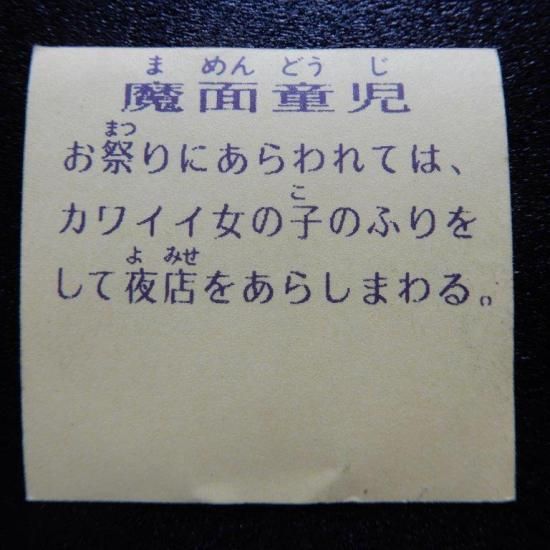 ま めん どう じ
魔面童児
まつ
お祭りにあらわれては、
こ
カワイイ女の子のふりを
よ みせ
して夜店をあらしまわる。